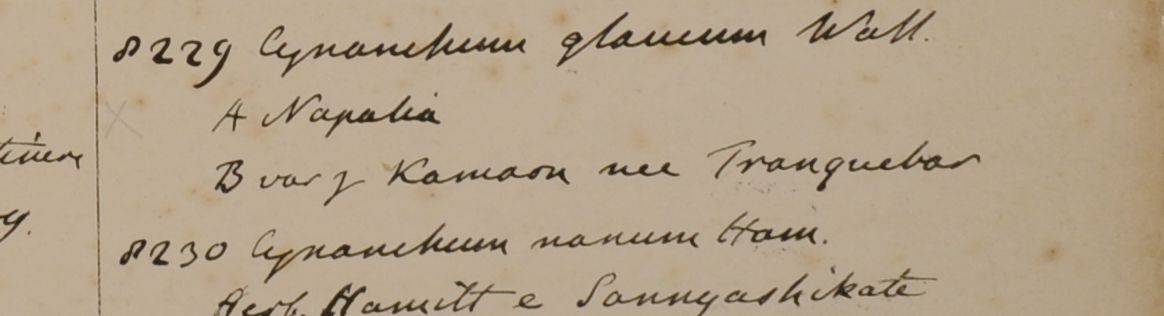 8229 Cynanchum glaucum Wall.
A Napalia
B var γ Kamaon nec Tranquebar
8230 Cynanchum nanum Ham.
Herb. Hamilt e Sannyashikate